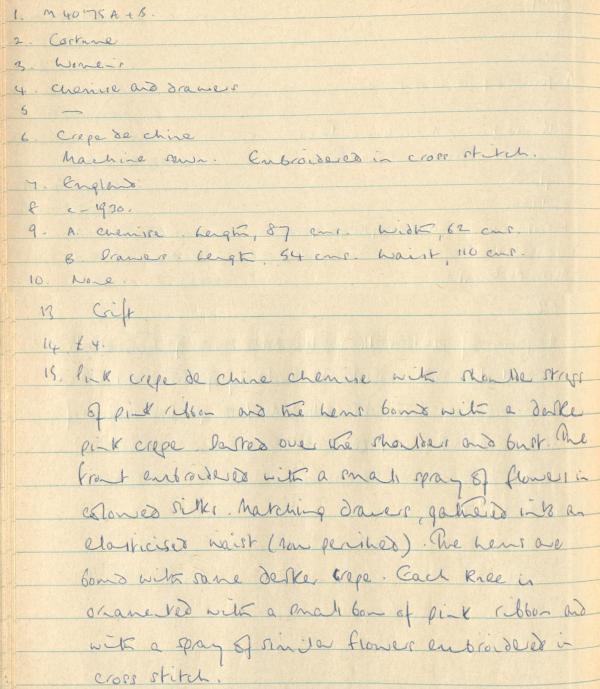 1. M 4075 A + B.
2. Costume
3. Women's
4. Chemise and drawers
5 —
6. Crepe de chine
Machine sewn. Embroidered in cross stitch.
7. England
8 c-1930.
9. A. Chemise. Length, 87 cms. Width, 62 cms.
B. Drawers. Length, 54 cms. Waist, 110 cms.
10. None.
13 Gift
14. £4.
15. Pink crepe de chine chemise with shoulder straps
of pink ribbon and the hems bound with a darker
pink crepe. Darted over the shoulders and bust. The
front embroidered with a small spray of flowers in
coloured silks. Matching drawers, gathered into an
elasticised waist (now perished). The hems are
bound with same darker crepe. Each knee is
ornamented with a small bow of pink ribbon and
with a spray of similar flowers embroidered in
cross stitch.